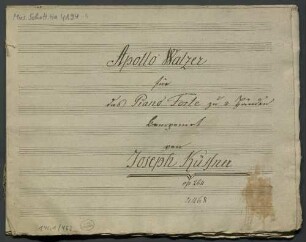 Mus. Schott Ha 4294-1
Apollo Walzer
für
das Piano Forte zu 2 Händen
componirt
von
Joseph Küffner
op 264
3163